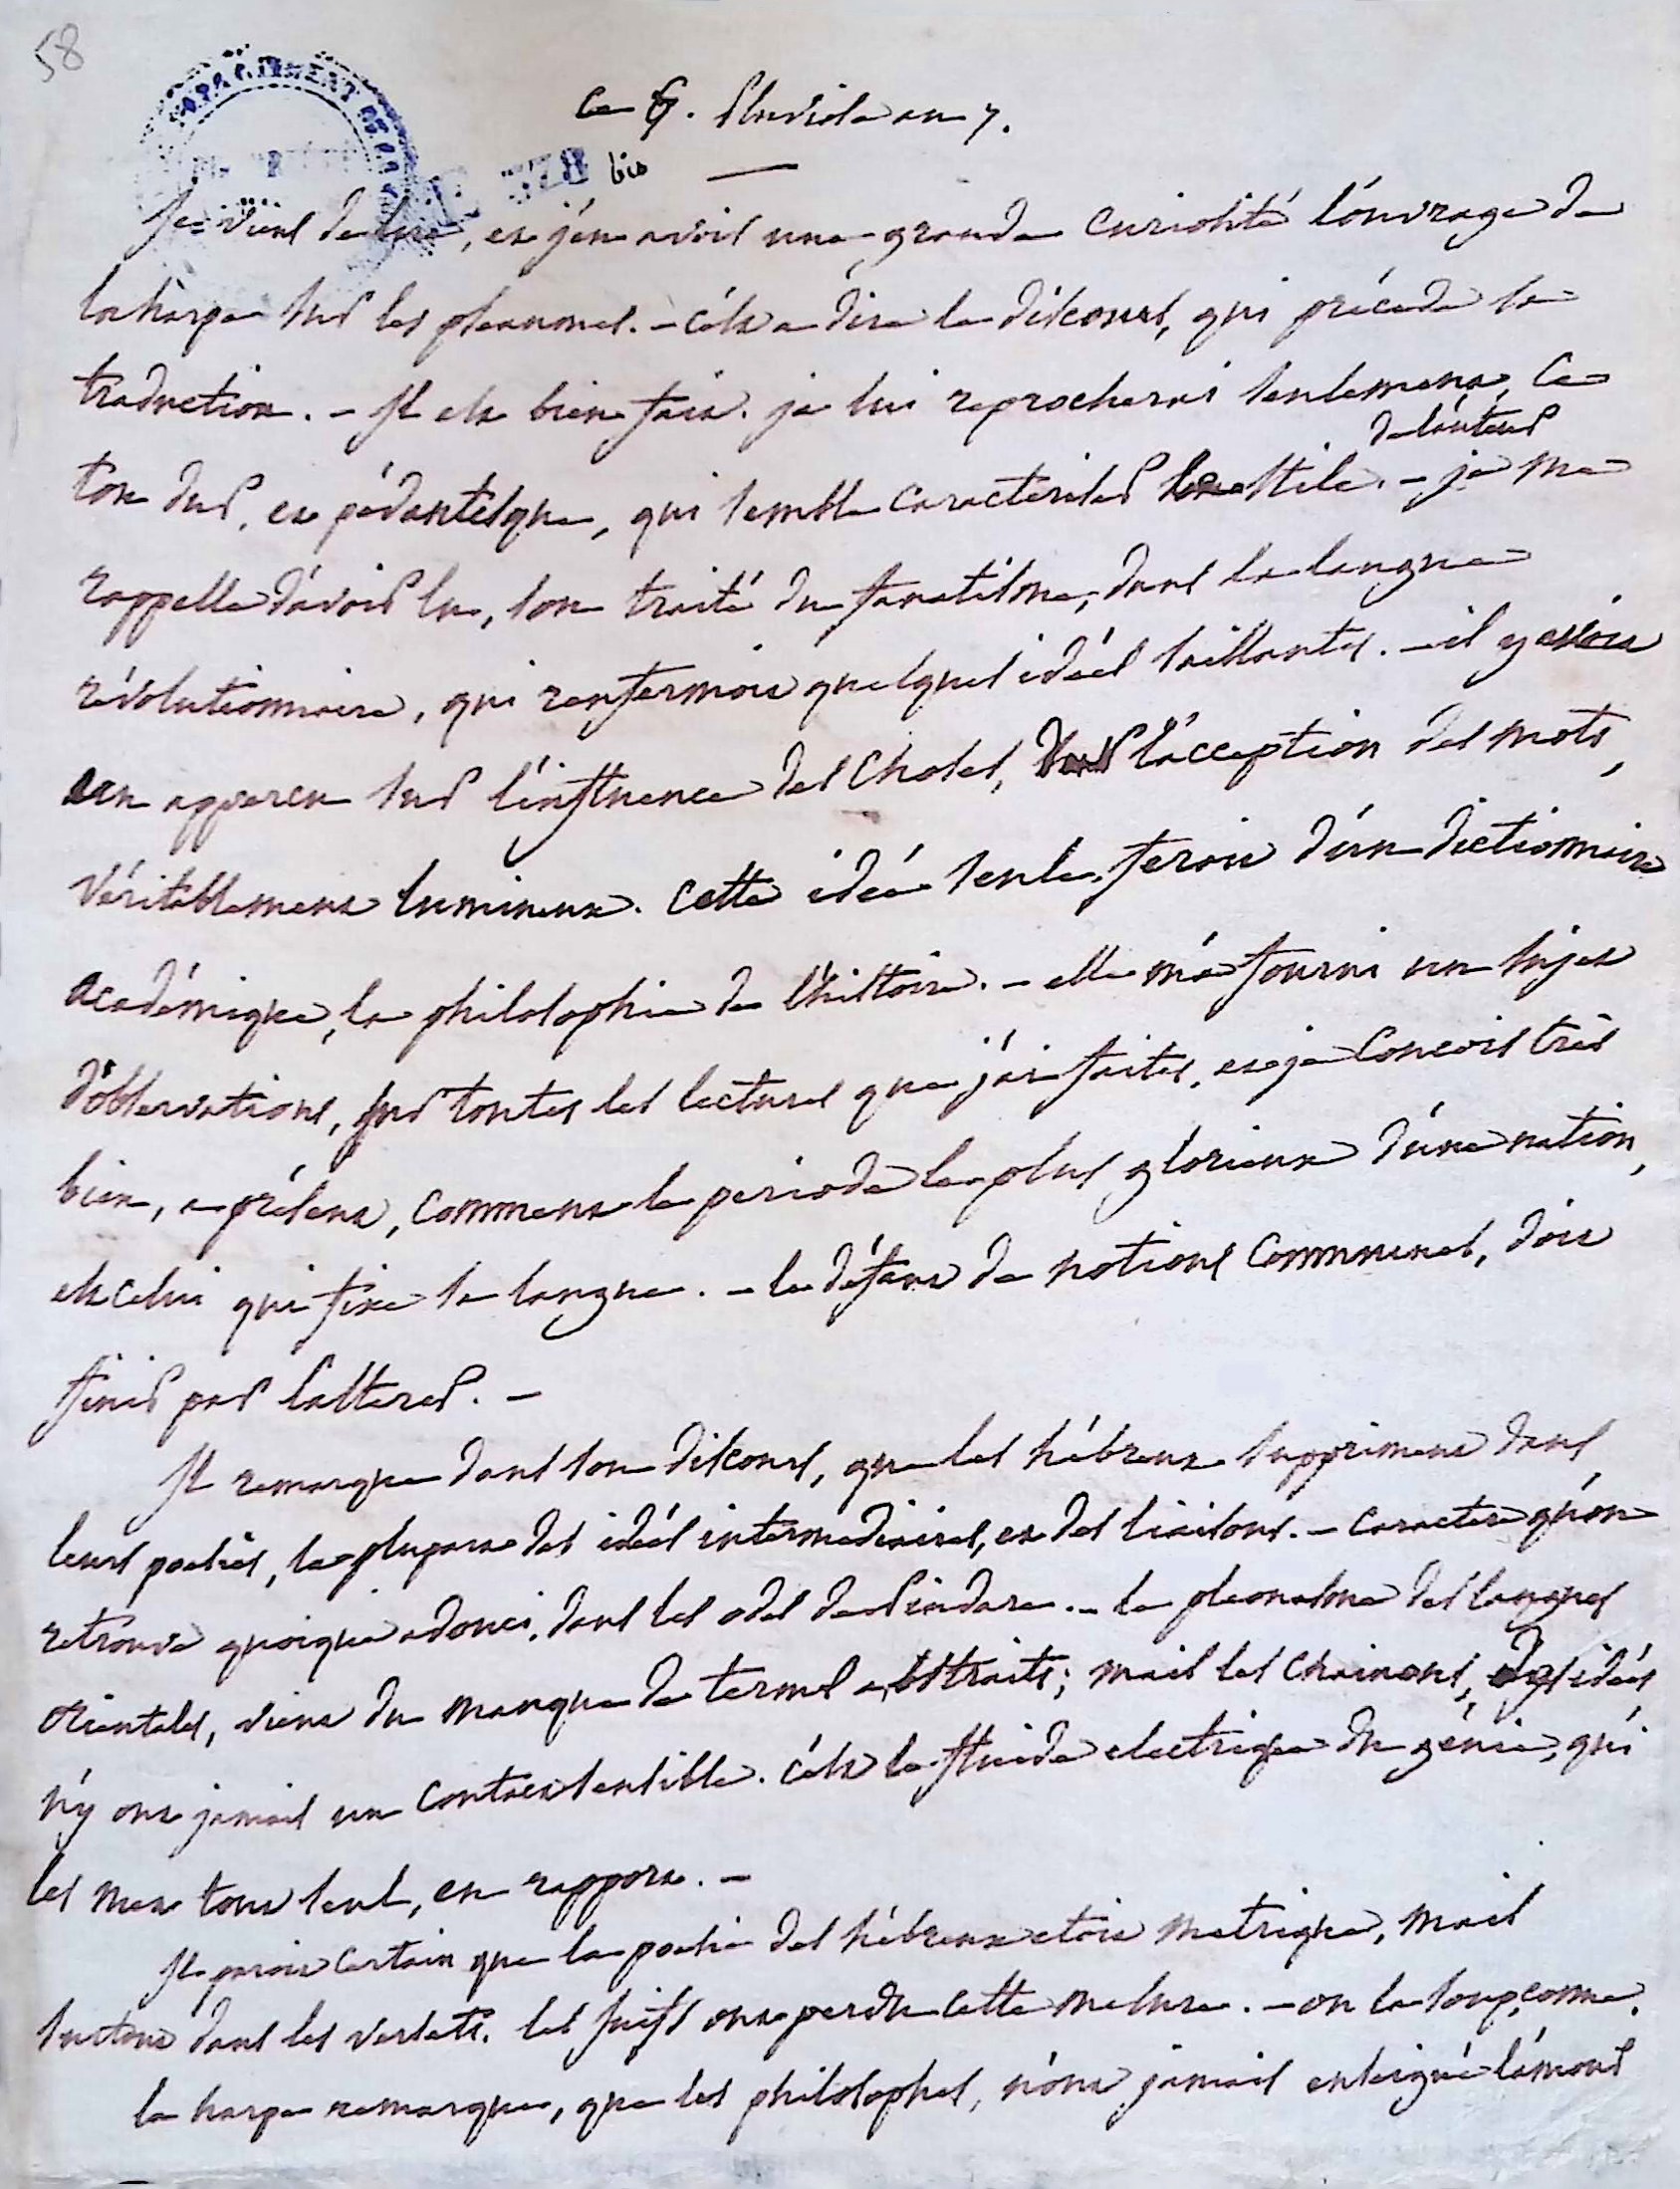 58
ce 6. Pluviose an 7.
bis
Je viens de lire, et j'en avois une grande curiosité l'ouvrage de
laharpe sur les pseaumes. - c'est a dire le discours, qui précede la
traduction. - Il est bien fait. je lui reprocherai seulement, ce
de l'auteur
ton dur, et pédantesque, qui semble caracteriser le stile. - je me
rappelle d'avoir lu, son traité du fanatisme, dans la langue
révolutionnaire, qui renfermoit quelques idées saillantes. - il y avoit
un apperçu sur l'influence des choses, sur l'acception des mots,
véritablement lumineux. cette idée seule feroit d'un dictionnaire
académique, la philosophie de l'histoire. - elle m'a fourni un sujet
d'observations, sur toutes les lectures que j'ai faites, et je concois très
bien, a présent, comment la periode la plus glorieuse d'une nation,
est celui qui fixe la langue. - le défaut de notions communes, doit
finir par l'altérer. -
Il remarque dans son discours, que les hébreux suppriment dans
leurs poesies, la plupart des idées intermediaires, et des liaisons. - caractere qu'on
retrouve quoique adouci, dans les odes de Pindare. - le pleonasme des langues
orientales, vient du manque de termes abstraits; mais les chainons, des idées
n'y ont jamais un contact sensible. c'est le fluide electrique du génie, qui
les met tout seul, en rapport. -
Il paroit certain que la poesie des hébreux etoit metrique, mais
surtout dans les versets. les juifs ont perdu cette mesure. - on la soupçonne.
la harpe remarque, que les philosophes, n'ont jamais enseigné l'amour